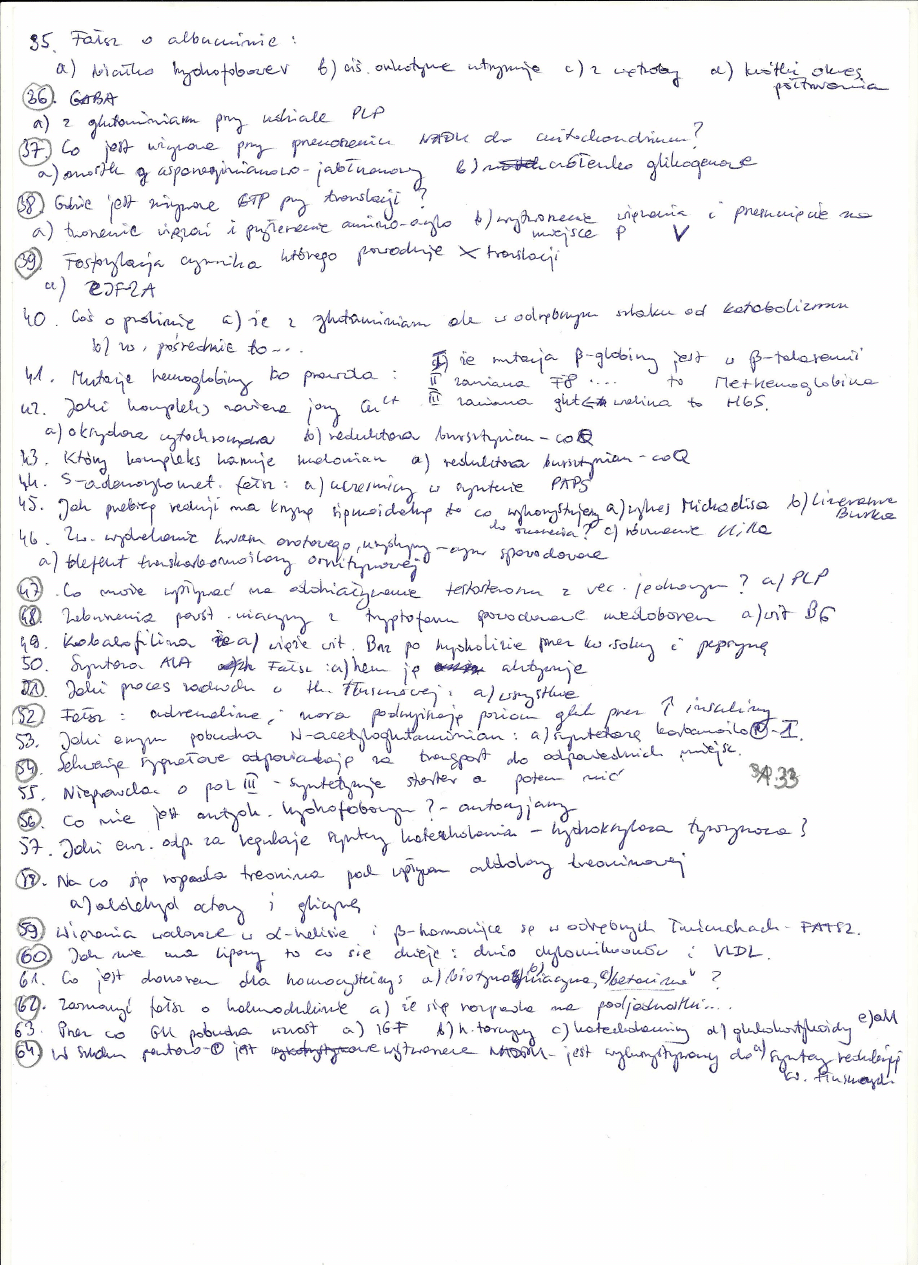 35. Fałsz o albuminie :
a) białko hydrofobowe v b) ciś. onkotyczne utrzymuje c) z wątroby d) krótki okres
półtrwania
36. GABA
a) z glutaminianu przy udziale PLP
37. Co jest wiązane przy przenoszeniu NADH do mitochondrium?
a) mostek asparaginianowo-jabłczanowy b) czółenko glikogenowe
38. Gdzie jest zużywane GTP przy translacji?
a) tworzenie wiązań i przyłączenie amino-acylo b) wytworzenie wiązania i przesunięcie na
miejsce P V
39. Fosforylacja czynnika którego powoduje X translacji
a) EJF2A
40. Coś o prolinie a) że z glutaminianu ale w odrębnym szlaku od katabolizmu
b) zw. pośrednie to...
41. Mutacje hemoglobiny to prawda : I że mutacja β-globiny jest w β-talasemii
II zamiana F8 .... to Methemoglobina
III zamiana glut walina to HbS.
42. Jaki kompleks zawiera jony Cu
a) oksydaza cytochromowa b) reduktaza bursztynian-coQ
43. Który kompleks hamuje malonian a) reduktaza bursztynian-coQ
44. S-adenozylomet. fałsz : a) uczestniczy w syntezie PAPS
45. Jak przebieg reakcji ma krzywą sigmoidalną to co wykorzystujesz a) wykres Michaelisa b) Lineweavera Burka
do? c) równanie Hilla
46. Zw. wydzielanie kwasu orotowego, spowodowane
a) defekt transkarbamoilazy ornitynowej
47. Co może wpływać na oddziaływanie testosteronu z rec. jądrowym? a) PLP
48. Zaburzenia powst. niacyny z tryptofanu spowodowane niedoborem a) wit B6
49. Kobalofilina że a) wiąże wit. B12 po hydrolizie przez kw. solny i pepsynę
50. Syntaza ALA Fałsz : a) hem ją aktywuje
51. Jaki proces zachodzi w tk. tłuszczowej: a) wszystkie
52. Fałsz : adrenalina, i nora podwyższają poziom gluk przez ↑ insuliny
53. Jaki enzym pobudza N-acetyloglutaminian : a) syntetazę karbamoilo P-I.
54. Sekwencje sygnałowe odpowiadają za transport do odpowiednich miejsc.
55. Nieprawda o pol III - syntetyzuje starter a potem nić
56. Co nie jest antyok. hydrofobowym? - antocyjany
57. Jaki enz. odp. za regulację syntezy katecholamin - hydroksylaza tyrozynowa?
58. Na co się rozpada treonina pod wpływem aldolazy treoninowej
a) aldehyd octowy i glicynę
59. Wiązania wodorowe w α-helisie i β-harmonijce są w odrębnych łańcuchach - FAŁSZ.
60. Jak nie ma lipazy to co się dzieje : dużo chylomikronów i VLDL.
61. Co jest donorem dla homocysteiny a) biotyna b) niacyna c) "betaina" ?
62. Zaznaczyć fałsz o kalmodulinie a) że się rozpada na podjednostki....
63. Przez co GH pobudza wzrost a) IGF b) h. tarczycy c) katecholaminy d) glukokortykoidy e) aldo
64. W szlaku pentozo-P jest wytworzone NADPH - jest wykorzystywany do a) syntezy redukcyjnej
kw. tłuszczowych.